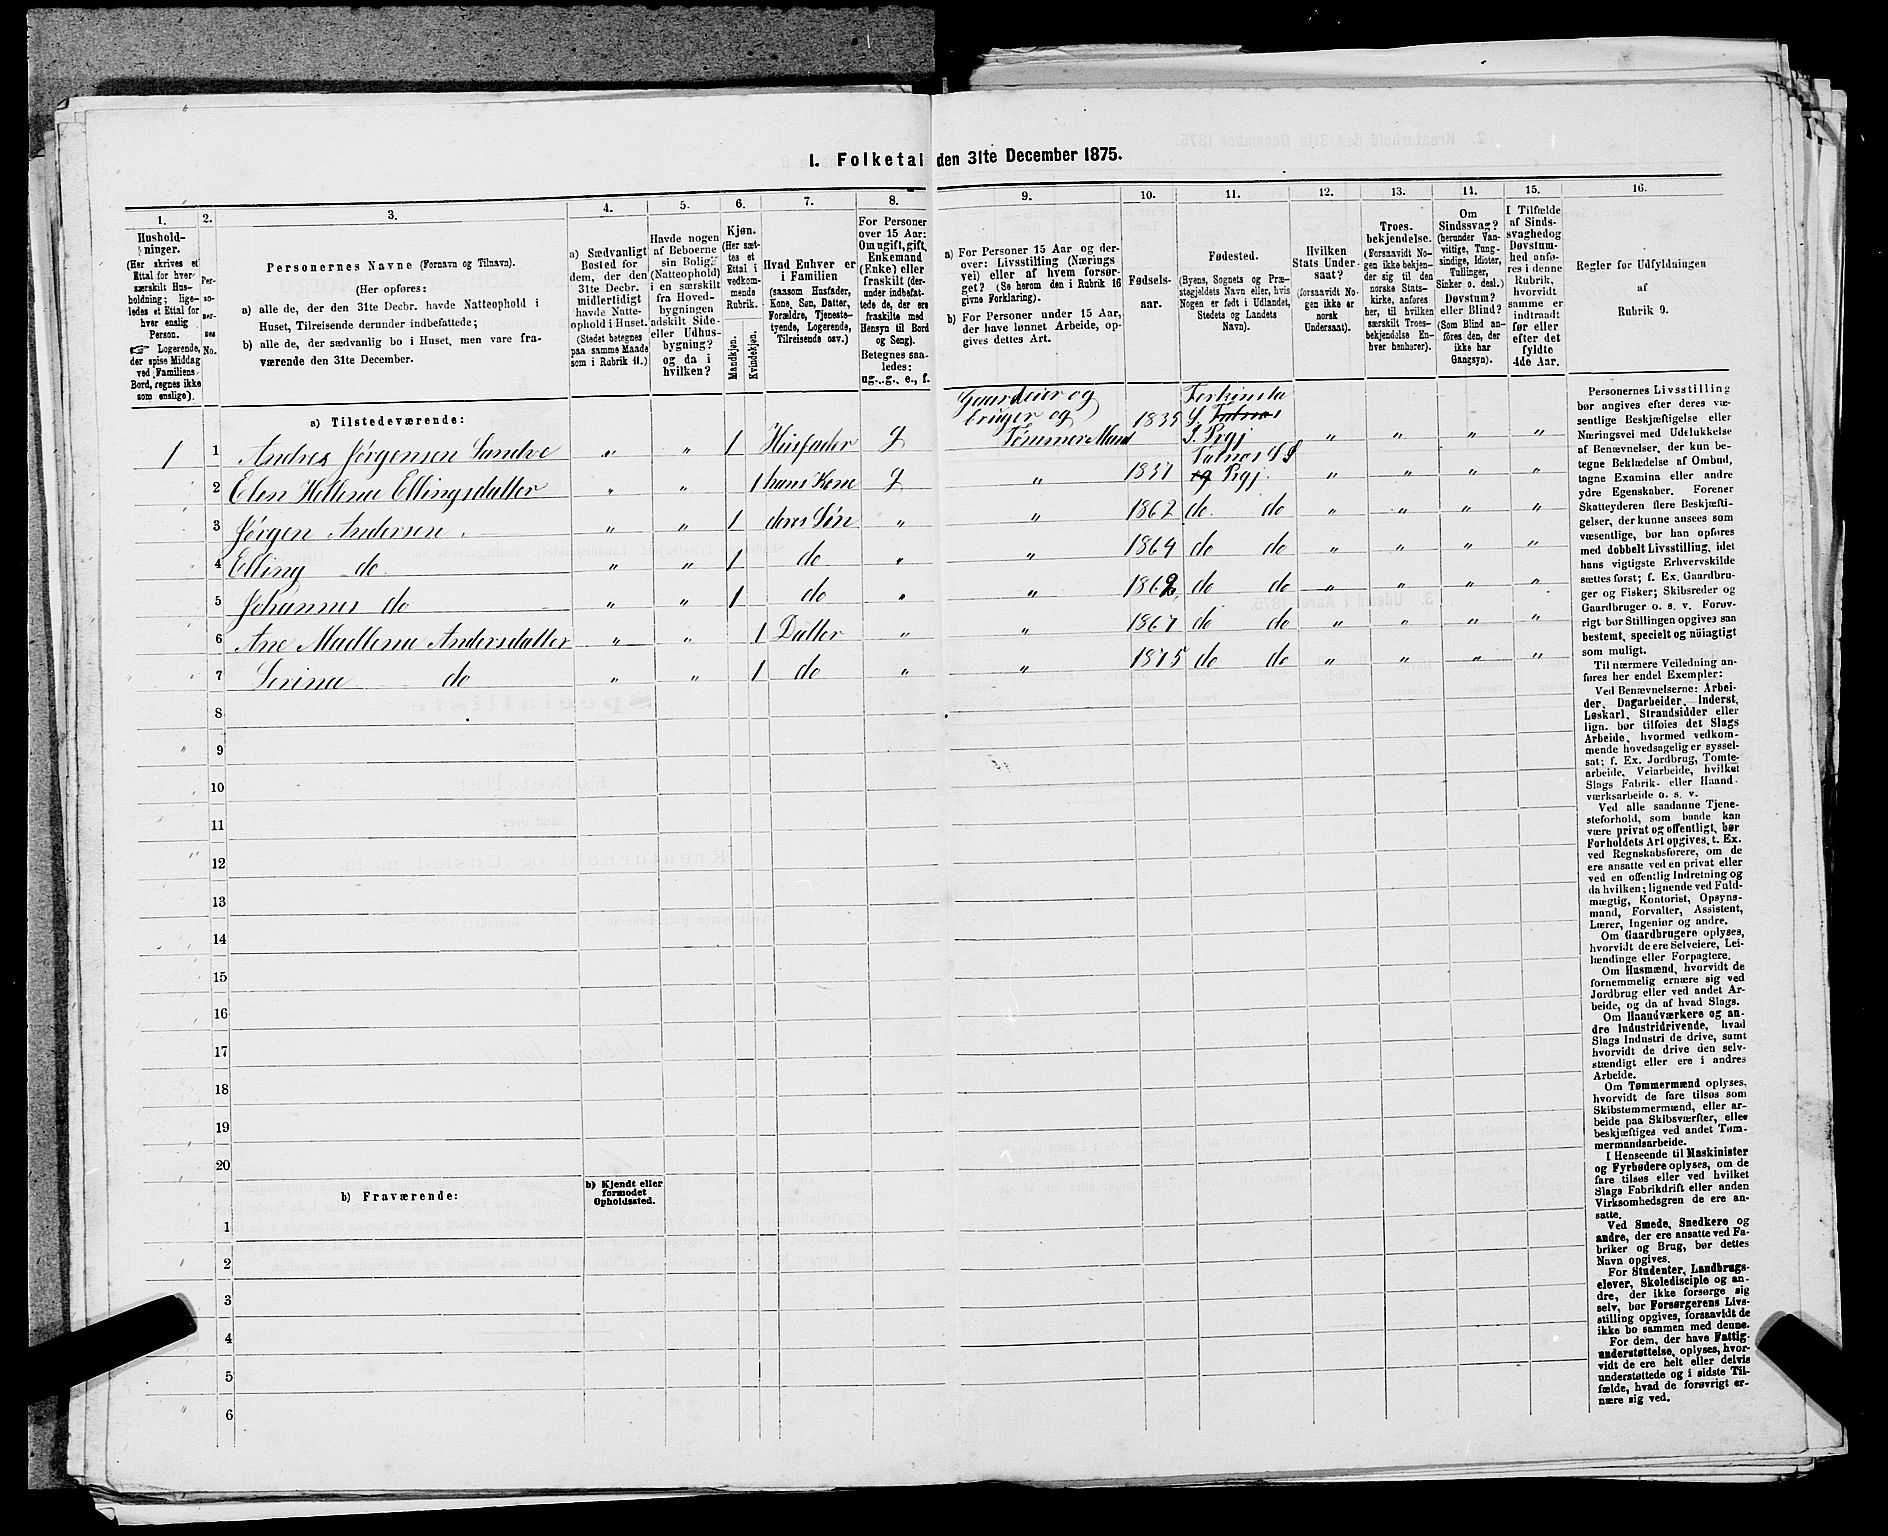 1. Folketal den 31te December 1875.
1. 2. 3. 4. 5. 6. 7. 8. 9. 10. 11. 12. 13. 14. 15. 16.
Hushold-
ninger.
(Her skrives et
Ettal for hver
særskilt Hus-
holdning; lige-
ledes et Ettal for
hver enslig
Person.
☞ Logerende,
der spise Middag
ved Familiens
Bord, regnes ikke
som enslige).
Per-
so-
ner-
nes
No.
Personernes Navne (Fornavn og Tilnavn).
(Her opføres:
a) alle de, der den 31te Decbr. havde Natteophold i
Huset, Tilreisende derunder indbefattede;
b) alle de, der sædvanlig bo i Huset, men vare fra-
værende den 31te December.
a) Sædvanligt
Bosted for
dem, der den
31te Decbr.
midlertidigt
havde Natte-
ophold i Huset.
(Stedet betegnes
paa samme Maade
som i Rubrik 11.)
Havde nogen
af Beboerne
sin Bolig
(Natteophold)
i en særskilt
fra Hoved-
bygningen
adskilt Side-
eller Udhus-
bygning?
og da i
hvilken?
Kjøn.
(Her sæt-
tes et
Ettal i
vedkom-
mende
Rubrik.
Mandkjøn.
Kvindekjøn.
Hvad Enhver er
i Familien
(saasom Husfader,
Kone, Søn, Datter,
Forældre, Tjeneste-
tyende, Logerende,
Tilreisende osv.)
For Personer
over 15 Aar:
Om ugift, gift,
Enkemand
(Enke) eller
fraskilt (der-
under indbefat-
tede de, der ere
fraskilte med
Hensyn til Bord
og Seng).
Betegnes saa-
ledes:
ug., g., e., f.
a) For Personer 15 Aar og der-
over: Livsstilling (Nærings
vei) eller af hvem forsør-
get? (Se herom den i Rubrik 16
givne Forklaring).
b) For Personer under 15 Aar,
der have lønnet Arbeide, op-
gives dettes Art.
Fødsels-
aar.
Fødested.
(Byens, Sognets og Præ-
stegjeldets Navn eller, hvis
Nogen er født i Udlandet,
Stedets og Landets
Navn).
Hvilken
Stats Under-
saat?
(forsaavidt No-
gen ikke er
norsk
Undersaat).
Troes-
bekjendelse.
(Forsaavidt No-
gen ikke bekjen-
der sig til den
norske Stats-
kirke, anføres
her, til hvilken
særskilt Troes-
bekjendelse En-
hver henhører).
Om
Sindssvag?
(herunder Van-
vittige, Tung-
sindige, Idioter,
Tullinger,
Sinker o. desl.)
Døvstum?
eller Blind?
(Som Blind an-
føres den, der
ikke har
Gangsyn).
I Tilfælde
af Sinds-
svaghed og
Døvstum-
hed anfø-
res i denne
Rubrik,
hvorvidt
samme er
indtraadt
før eller
efter det
fyldte
4de Aar.
Regler for Udfyldningen
af
Rubrik 9.
a) Tilstedeværende:
1 1 Andres Jørgensen Sandve " " 1 Husfader G Gaardeier og bruger og Tømmer Mand 1835 Ferkinsta S. Falnæs S. Prgj " " " "
2 Elen Hellene Ellingsdatter " " 1 hans Kone G " 1837 Falnæs S og Prgj. " " " "
3 Jørgen Andersen " " 1 deres Søn " " 1862 do do " " " "
4 Elling do " " 1 do " " 1864 do do " " " "
5 Johannes do " " 1 do " " 1862 do do " " " "
6 Ane Madlene Andersdatter " " 1 Datter " " 1867 do do " " " "
7 Serine do " " 1 do " " 1875 do do " " " "
8
9
10
11
12
13
14
15
16
17
18
19
20
b) Fraværende:
b) Kjendt eller
formodet
Opholdssted.
1
2
3
4
5
6
Personernes Livsstilling
bør angives efter deres væ-
sentlige Beskjæftigelse eller
Næringsvei med Udelukkelse
af Benævnelser, der kun be-
tegne Beklædelse af Ombud,
tagne Examina eller andre
ydre Egenskaber. Forener
Skatteyderen flere Beskjæfti-
gelser, der kunne ansees som
væsentlige, bør han opføres
med dobbelt Livsstilling, idet
hans vigtigste Erhvervskilde
sættes først; f. Ex. Gaardbru-
ger og Fisker; Skibsreder og
Gaardbruger o. s. v. Forøv-
rigt bør Stillingen opgives saa
bestemt, specielt og nöiagtigt
som muligt.
Til nærmere Veiledning an-
føres her endel Exempler:
Ved Benævnelserne: Arbei-
der, Dagarbeider, Inderst,
Løskarl, Strandsidder eller
lign. bør tilføies det Slags
Arbeide, hvormed vedkom-
mende hovedsagelig er syssel-
sat; f. Ex. Jordbrug, Tomte-
arbeide, Veiarbeide, hvilket
Slags Fabrik- eller Haand-
værksarbeide o. s. v.
Ved alle saadanne Tjene-
steforhold, som baade kan
være privat og offentligt, bør
Forholdets Art opgives, t. Ex.
ved Regnskabsførere, om de
ere ansatte ved en privat eller
ved en offentlig Indretning og
da hvilken; lignende ved Fuld-
mægtig, Kontorist, Opsyns-
mand, Forvalter, Assistent,
Lærer, Ingeniør og andre.
Om Gaardbrugere oplyses,
hvorvidt de ere Selveiere, Lei-
lændinge eller Forpagtere.
Om Husmænd, hvorvidt de
fornemmelig ernære sig ved
Jordbrug eller ved andet Ar-
beide, og da af hvad Slags.
Om Haandværkere og an-
dre Industridrivende, hvad
Slags Industri de drive, samt
hvorvidt de drive den selv-
stændigt eller ere i andres
Arbeide.
Om Tømmermænd oplyses,
hvorvidt de fare tilsøs som
Skibstømmermænd, eller ar-
beide paa Skibsværfter, eller
beskjæftiges ved andet Tøm-
mermandsarbeide.
I Henseende til Maskinister
og Fyrbødere oplyses, om de
fare tilsøs eller ved hvilket
Slags Fabrikdrift eller anden
Virksomhedsgren de ere an-
satte.
Ved Smede, Snedkere og
andre, der ere ansatte ved Fa-
briker og Brug, bør dettes
Navn opgives.
For Studenter, Landbrugs-
elever, Skoledisciple og an-
dre, der ikke forsørge sig
selv, bør Forsørgerens Livs-
stilling opgives, forsaavidt de
ikke bo sammen med denne.
For dem, der have Fattig-
understøttelse, oplyses, hvor-
vidt de ere helt eller delvis
understøttede og i sidste Til-
fælde, hvad de forøvrigt er-
nære sig ved.